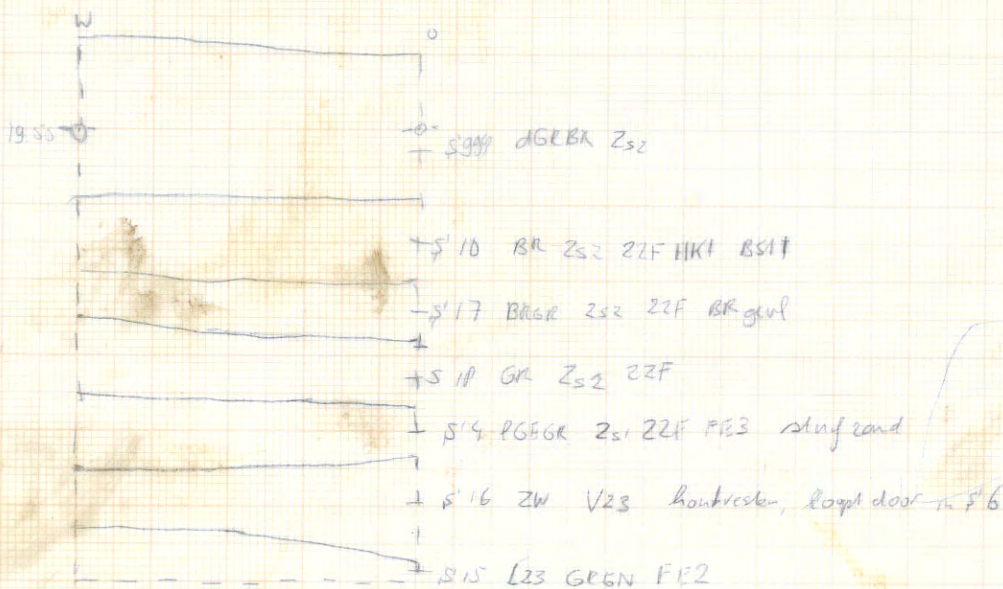 W O
19.55
S999 dGRBR Zs2
S10 BR Zs2 ZZF HK1 BST1
S17 BRGR Zs2 ZZF BR gevl
S18 GR Zs2 ZZF
S4 lGEGR Zs1 ZZF FE3 stuifzand
S16 ZW VZ3 houtresten, loopt door in S6
S15 LZ3 GRGN FE2